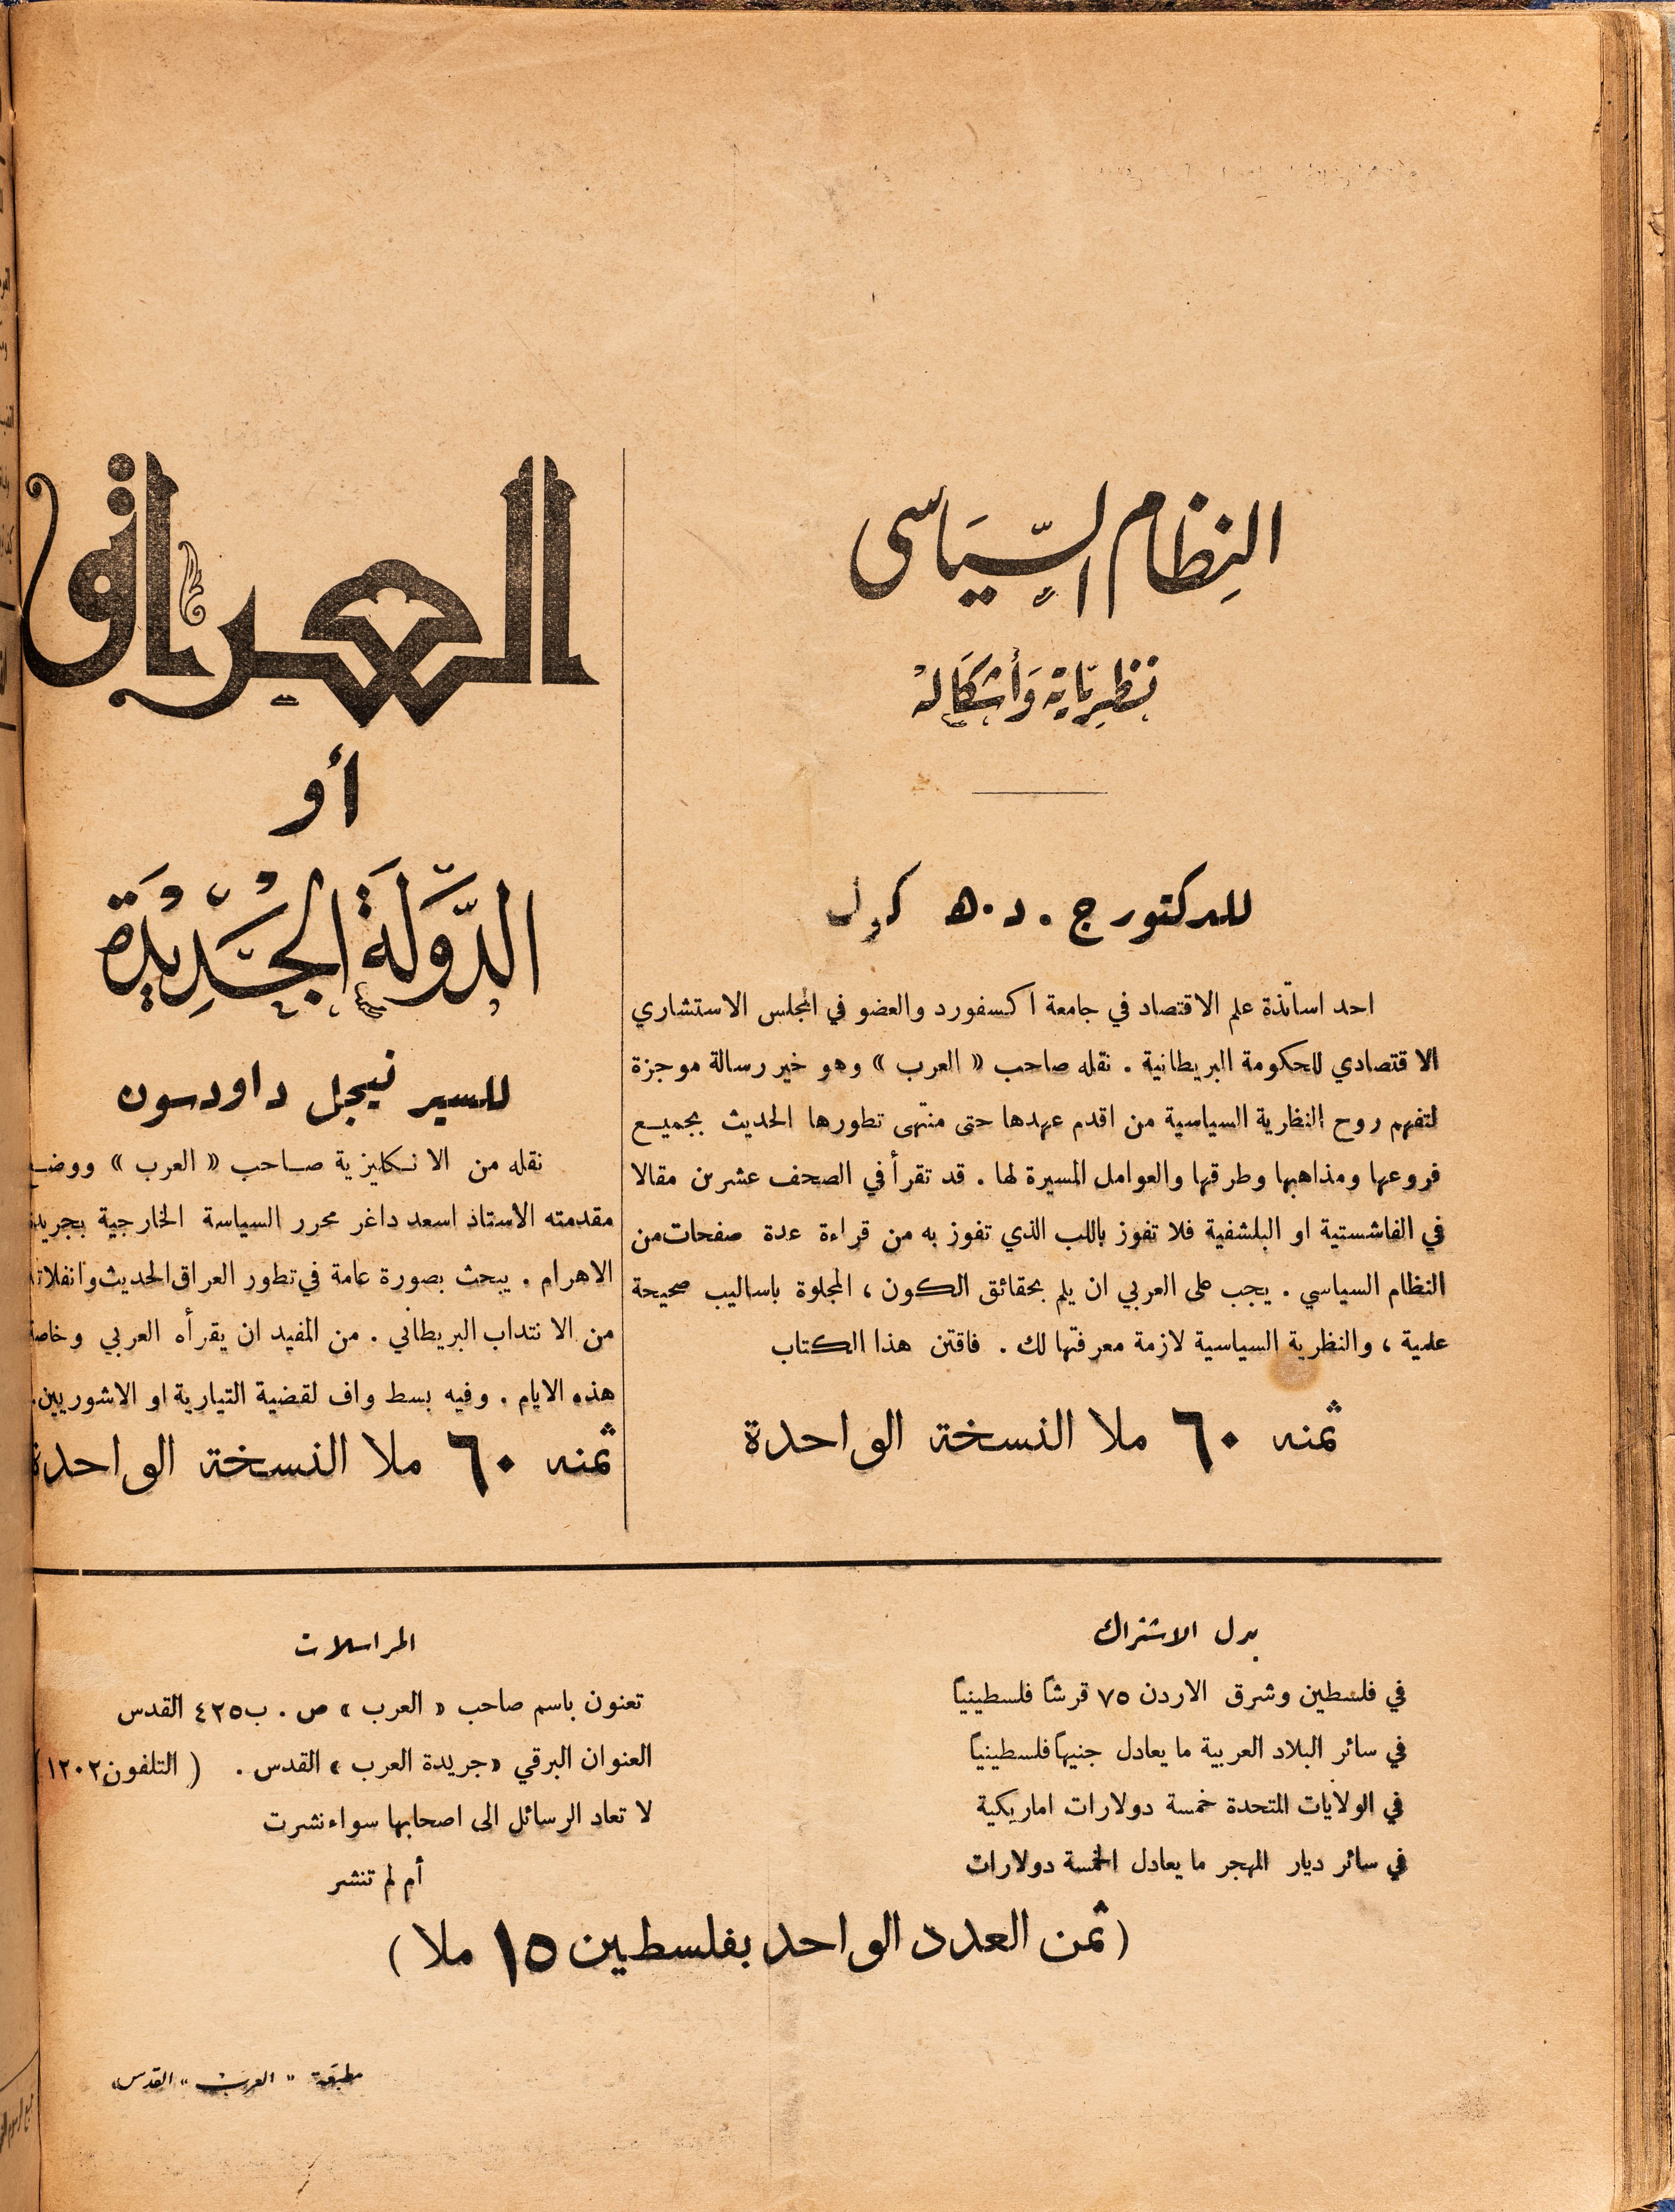 النظام السياسى
نظرياته وأشكاله
للدكتور ج . د . ه كول
احد اساتذة علم الاقتصاد في جامعة اكسفورد والعضو في المجلس الاستشاري
الاقتصادي للحكومة البريطانية . نقله صاحب « العرب » وهو خير رسالة موجزة
لتفهم روح النظرية السياسية من اقدم عهدها حتى منتهى تطورها الحديث بجميع
فروعها ومذاهبها وطرقها والعوامل المسيرة لها . قد تقرأ في الصحف عشرين مقالا
في الفاشستية او البلشفية فلا تفوز باللب الذي تفوز به من قراءة عدة صفحات من
النظام السياسي . يجب على العربي ان يلم بحقائق الكون ، المجلوة باساليب صحيحة
علمية ، والنظرية السياسية لازمة معرفتها لك . فاقتن هذا الكتاب
ثمنه ٦٠ ملا النسخة الواحدة
العراق
أو
الدَّولَة الجَديدَة
للسير نيجل داودسون
نقله من الانكليزية صاحب « العرب » ووضع
مقدمته الاستاذ اسعد داغر محرر السياسة الخارجية بجريدة
الاهرام . يبحث بصورة عامة في تطور العراق الحديث وانفلاته
من الانتداب البريطاني . من المفيد ان يقرأه العربي وخاصة
هذه الايام . وفيه بسط واف لقضية التيارية او الاشوريين .
ثمنه ٦٠ ملا النسخة الواحدة
بدل الاشتراك
في فلسطين وشرق الاردن ٧٥ قرشاً فلسطينياً
في سائر البلاد العربية ما يعادل جنيهاً فلسطينياً
في الولايات المتحدة خمسة دولارات اماريكية
في سائر ديار المهجر ما يعادل الخمسة دولارات
المراسلات
تعنون باسم صاحب « العرب » ص . ب ٤٢٥ القدس
العنوان البرقي « جريدة العرب » القدس . ( التلفون ١٢٠٢ )
لا تعاد الرسائل الى اصحابها سواء نشرت
أم لم تنشر
( ثمن العدد الواحد بفلسطين ١٥ ملا )
مطبعة " العرب " القدس